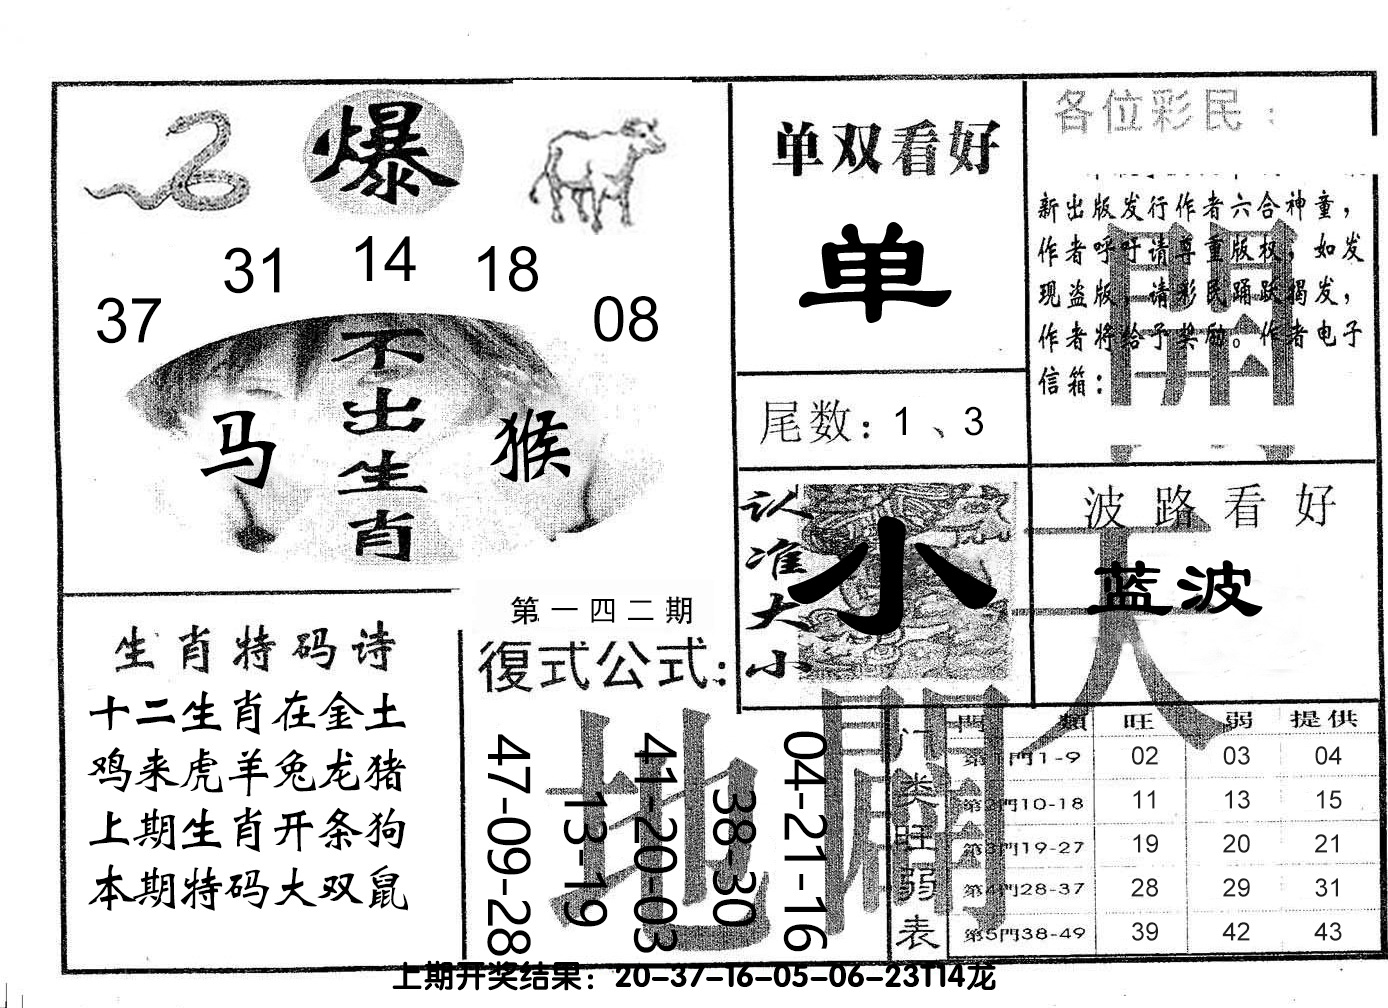 爆
31 14 18
37 08
不出生肖
马 猴
单双看好
单
尾数：1、3
各位彩民：
新出版发行作者六合神童，
作者呼吁请尊重版权，如发
现盗版，请彩民踊跃揭发，
作者将给予奖励。作者电子
信箱：
認准大小
小
波路看好
蓝波
天
開
地
開
生肖特码诗
十二生肖在金土
鸡来虎羊兔龙猪
上期生肖开条狗
本期特码大双鼠
第一四二期
復式公式：
47-09-28
13-19
41-20-03
38-30
04-21-16
门类旺弱表
門類 旺 弱 提供
第1門1-9 02 03 04
第2門10-18 11 13 15
第3門19-27 19 20 21
第4門28-37 28 29 31
第5門38-49 39 42 43
上期开奖结果：20-37-16-05-06-23T14龙